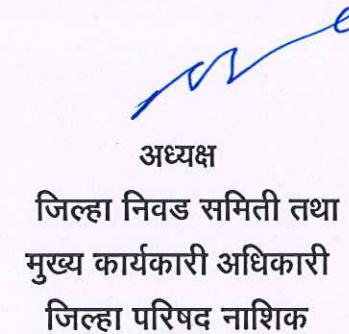 अध्यक्ष
जिल्हा निवड समिती तथा
मुख्य कार्यकारी अधिकारी
जिल्हा परिषद नाशिक